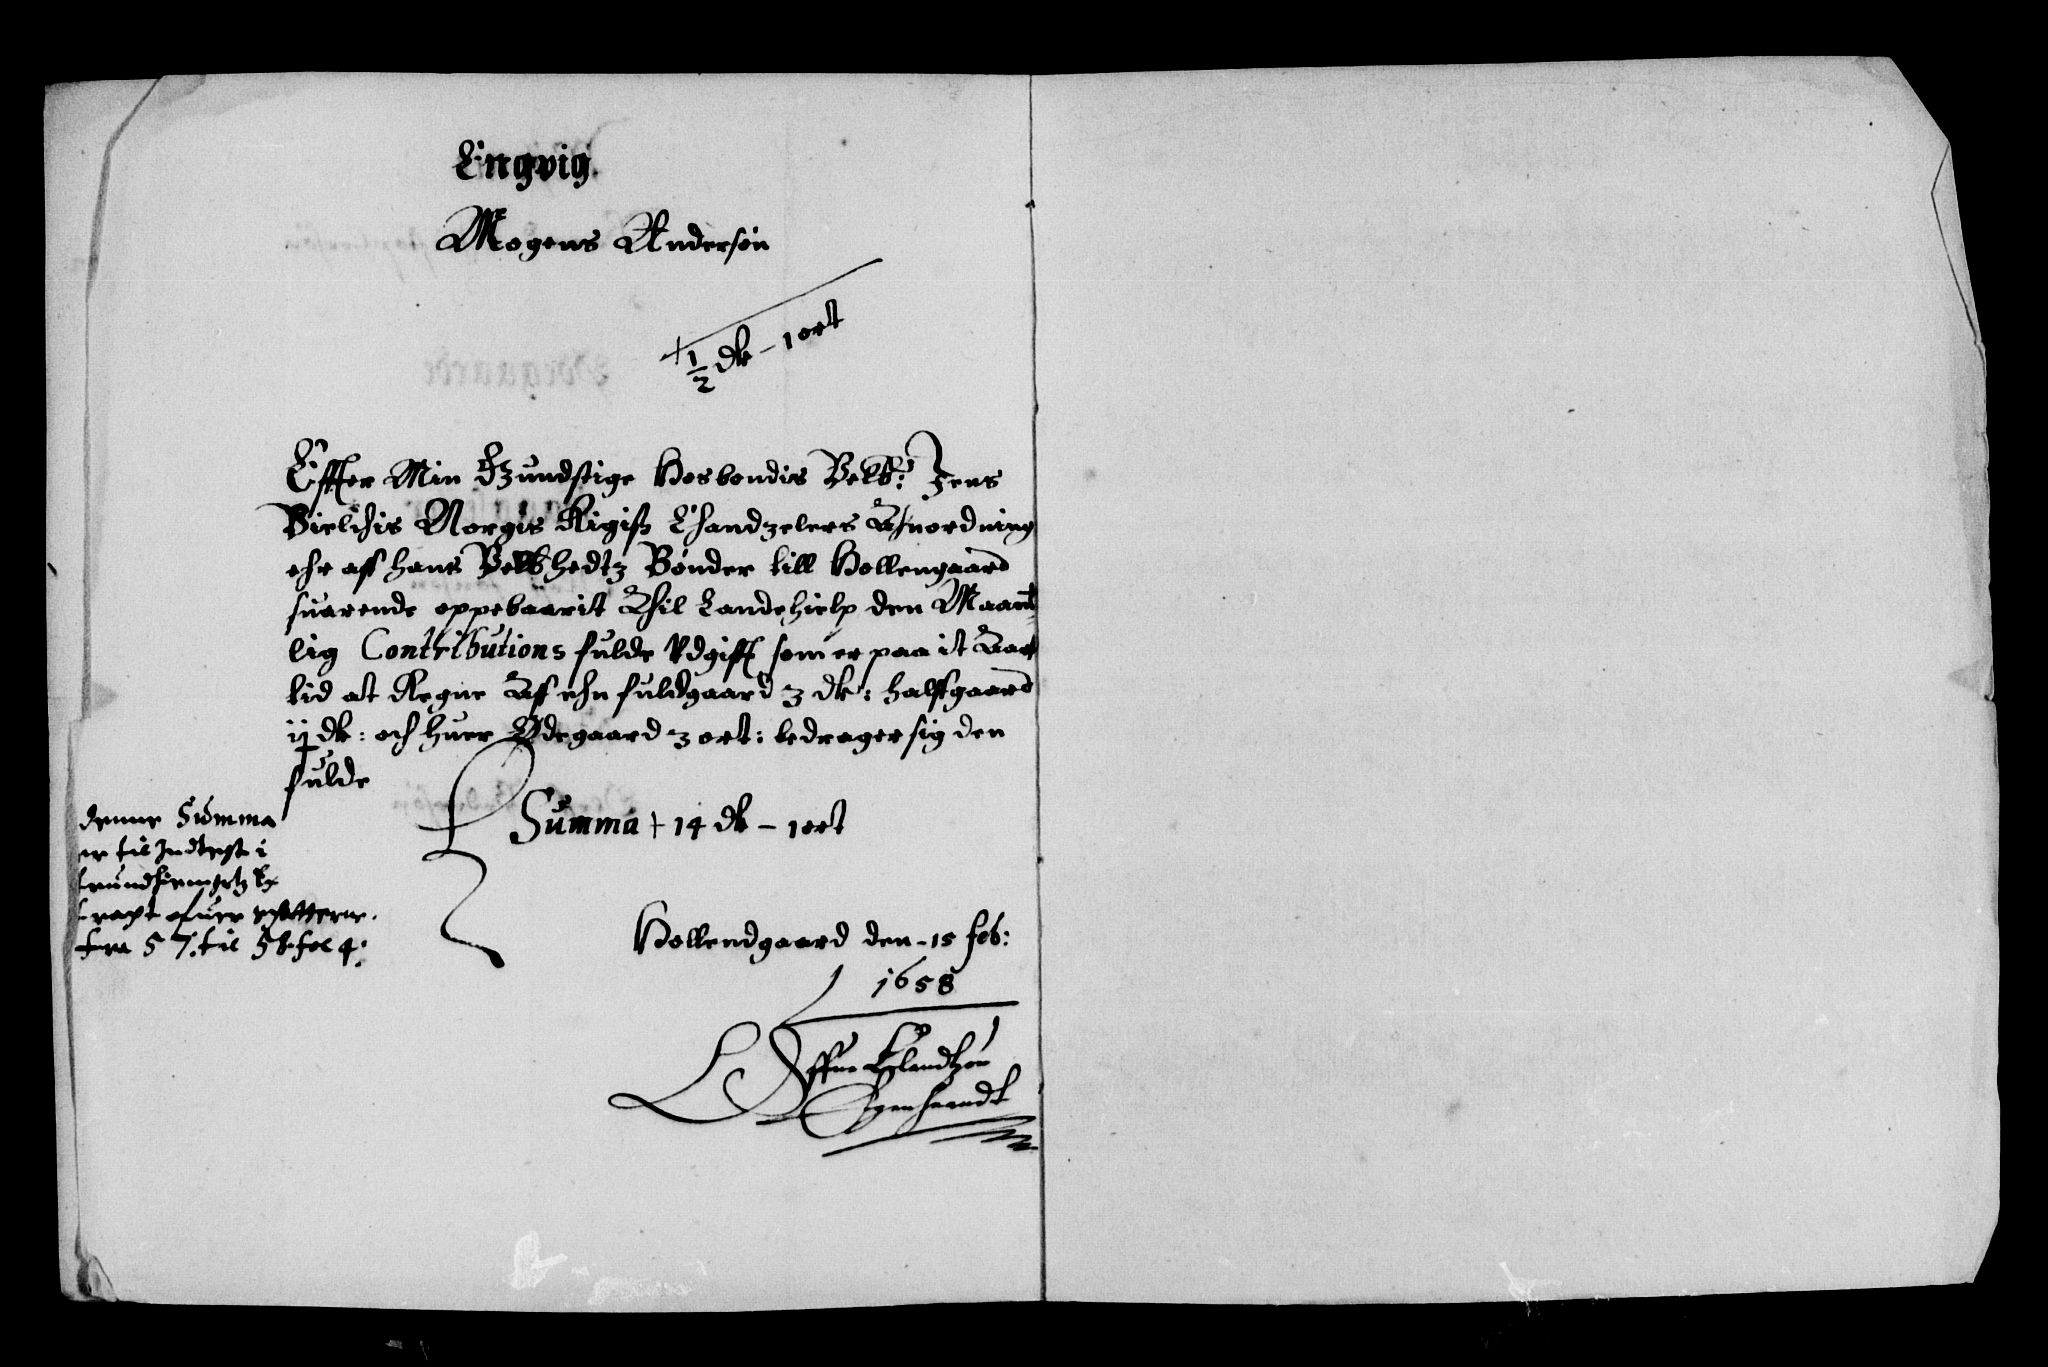 Engvig
Mogens Andersøn
+ 1/2 dlr – 1 ort
Effter Min Gundstige Hosbondis Velb: Jens
Bielchis Norgis Rigiß Chandzelers Anordning
ehr aff hans Velb:hedtz Bønder till Hollengaard
suarende oppebaarit Thil Landehielp den Maant
lig Contributions fulde Vdgifft som er paa it Aar
tid at Regne Aff ehn fuldgaard 3 dlr: halffgaard
ij dlr: och huer Ødegaard 3 ort: bedrager sig den
fulde
Summa + 14 dlr – 1 ort
denne Summa
er til Indtegt i
Extract ofuer
fra 57. til 58. fol 4:
Hollendgaard den 15 feb:
1658
Effue Erlandtzøn
Egenhaandt